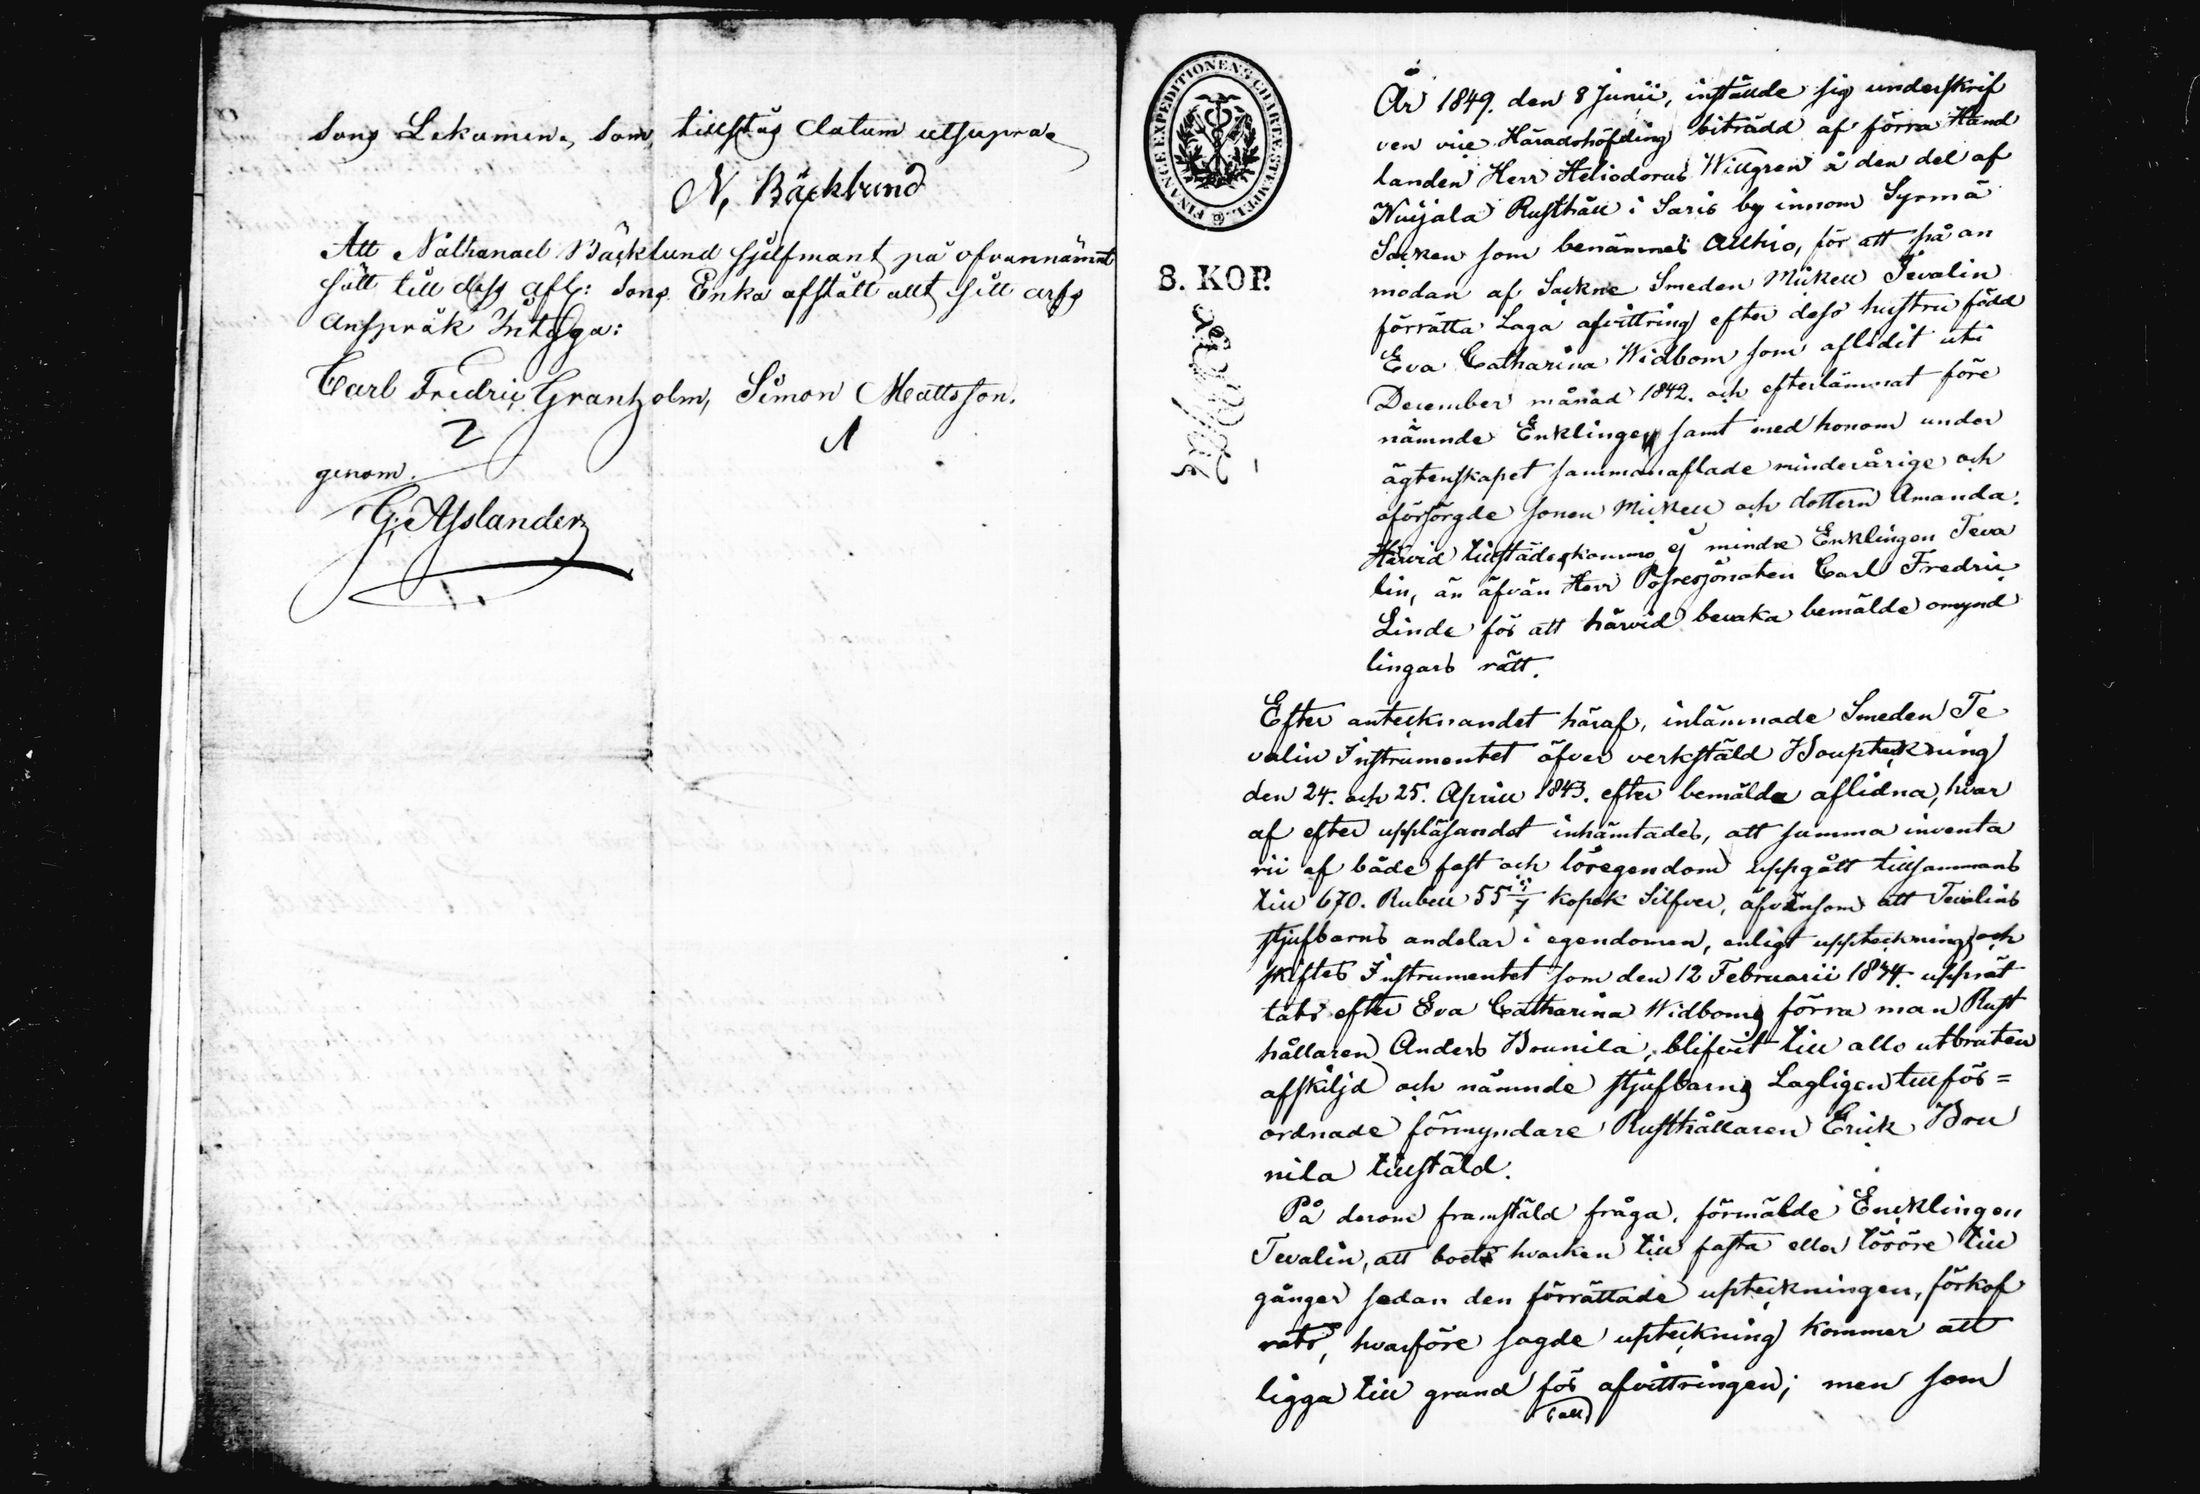 sons Lekamen, som, tillstås Datum utsupra
N. Bäcklund
Att Nathanael Bäcklund sjelfmant på ofvannämnt
sätt till dess afl: sons Enka afstått allt sitt arfs
anspråk Intyga:
Carl Fredric Granholm, Simon Mattsson.
genom.
G. Asslander
FINANCE EXPEDITIONENS CHARTÆ STEMPEL
8. KOP.
År 1849. den 8 Junii, inställde sig underskrif
ven vice Häradshöfding biträdd af förra Hand
landen Herr Heliodorus Willgren å den del af
Nuijala Rusthåll i Saris by innom Syrmä
Socken som benämnes Alhio, för att på an
modan af Sockne Smeden Mickell Tevalin
förrätta Laga afvittring efter dess hustru född
Eva Catharina Widbom som aflidit uti
December månad 1842. och efterlämnat före
nämnde Enklingen samt med honom under
ägtenskapet sammanaflade minderårige och
oförsörgde sonen Mickell och dottern Amanda.
Härvid tillstädeskommo ej mindre Enklingen Teva
lin, än äfvän Herr Possesjonaten Carl Fredric
Linde för att härvid bevaka bemälde omynd
lingars rätt.
Efter antecknandet häraf, inlämnade Smeden Te
valin Instrumentet öfver verkstäld Bouptekning
den 24. och 25. Aprill 1843. efter bemälda aflidna, hvar
af efter uppläsandet inhämtades, att summa inventa
rii af både fast och lösegendom uppgått tillsammans
till 670. Rubell 55 kopek Silfver, äfvänsom att Tevalins
stjufbarns andelar i egendomen, enligt uppteckning och
skiftes Instrumentet som den 12 Februarii 1834. upprät
tats efter Eva Catharina Widboms förra man Rust
hållaren Anders Brunila, blifvit till alls utbruten
afskiljd och nämnde stjufbarns Lagligen tillför=
ordnade förmyndare Rusthållaren Erick Bru
nila tillstäld.
På derom framstäld fråga, förmälde Encklingen
Tevalin, att boets hvarken till fasta eller lösöre till
gånger sedan den förrättade upteckningen, förkof
rats, hvarföre sagde upteckning kommer att
ligga till grund för afvittringen; men som
(all)